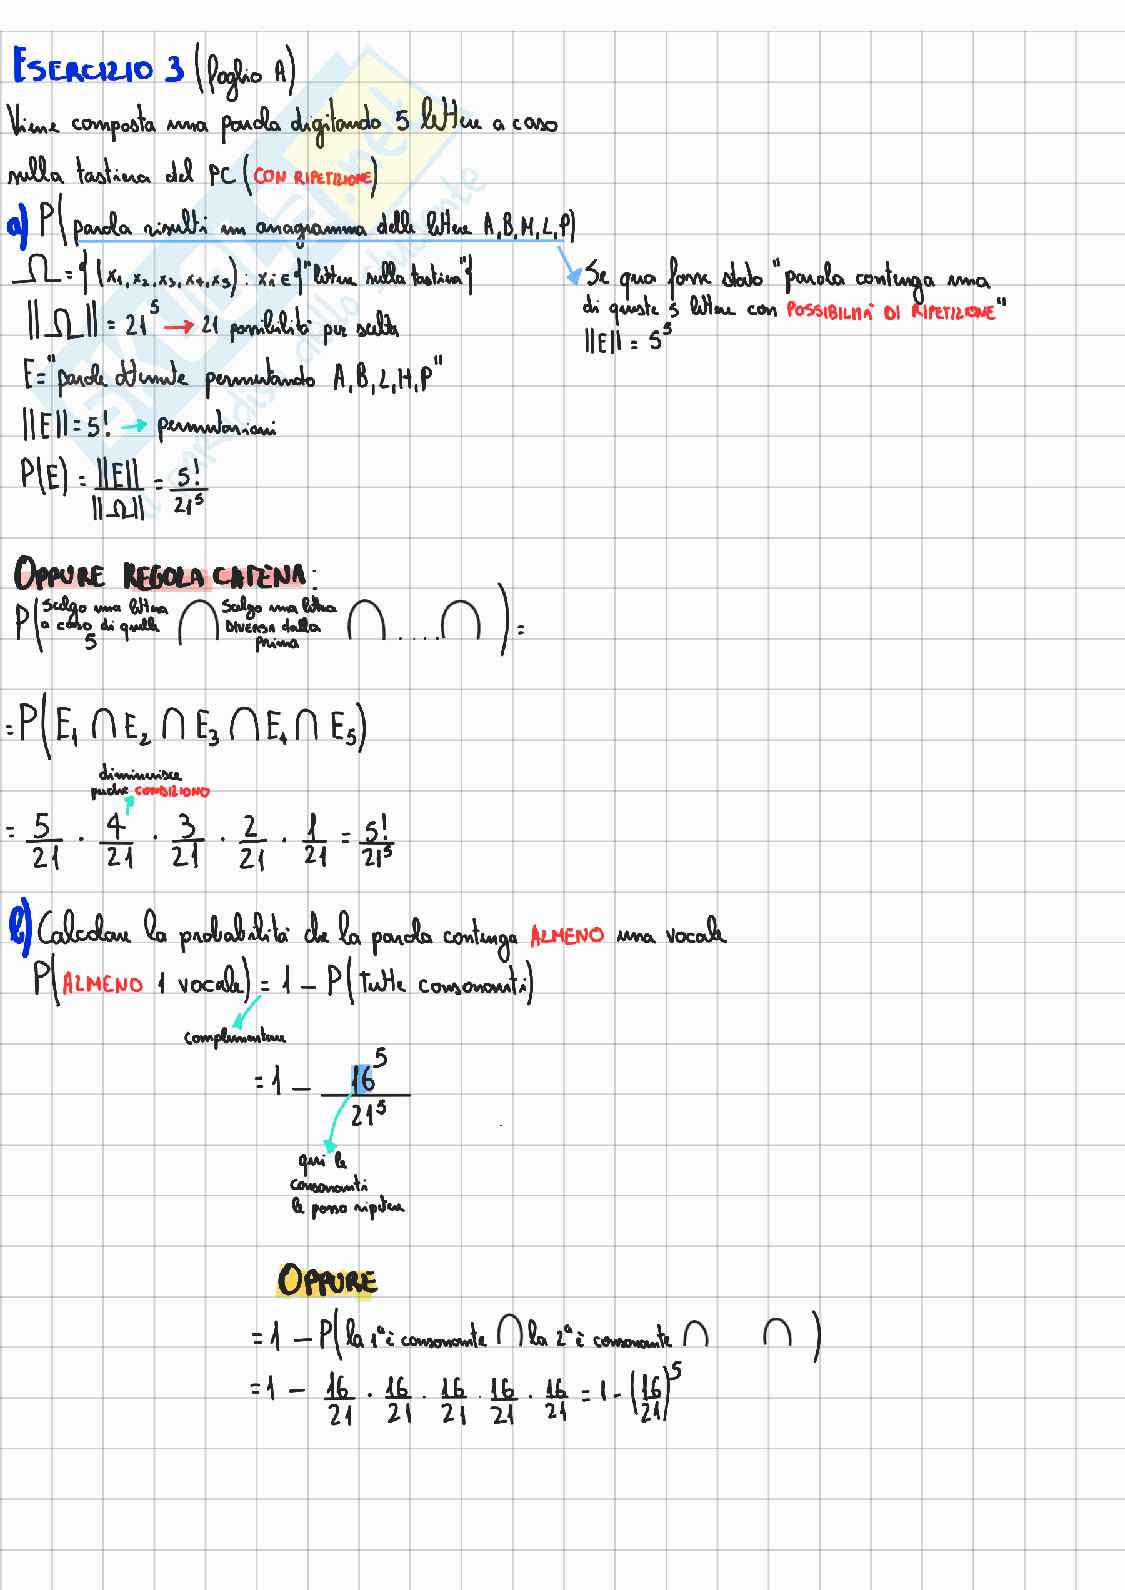 ESERCIZIO 3 (foglio A)
Viene composta una parola digitando 5 lettere a caso
sulla tastiera del PC (CON RIPETIZIONE)
a) P(parola risulti un anagramma delle lettere A,B,M,L,P)
Ω = {(x₁,x₂,x₃,x₄,x₅) : xᵢ ∈ {"lettere sulla tastiera"}
||Ω|| = 21⁵ → 21 possibilità per scelta
Se qua fosse stato "parola contenga una
di queste 5 lettere con POSSIBILITÀ DI RIPETIZIONE"
||E|| = 5⁵
E = "parole ottenute permutando A,B,L,M,P"
||E|| = 5! → permutazioni
P(E) = ||E|| / ||Ω|| = 5! / 21⁵
OPPURE REGOLA CATENA:
P(Scelgo una lettera a caso di quelle 5 ∩ Scelgo una lettera DIVERSA dalla prima ∩ .... ∩ ) =
= P(E₁ ∩ E₂ ∩ E₃ ∩ E₄ ∩ E₅)
diminuisce
perché CONDIZIONO
= 5/21 · 4/21 · 3/21 · 2/21 · 1/21 = 5!/21⁵
b) Calcolare la probabilità che la parola contenga ALMENO una vocale
P(ALMENO 1 vocale) = 1 – P(tutte consonanti)
complementare
= 1 – 16⁵ / 21⁵
qui le
consonanti
le posso ripetere
OPPURE
= 1 – P(la 1ª è consonante ∩ la 2ª è consonante ∩ ∩ )
= 1 – 16/21 · 16/21 · 16/21 · 16/21 · 16/21 = 1 - (16/21)⁵